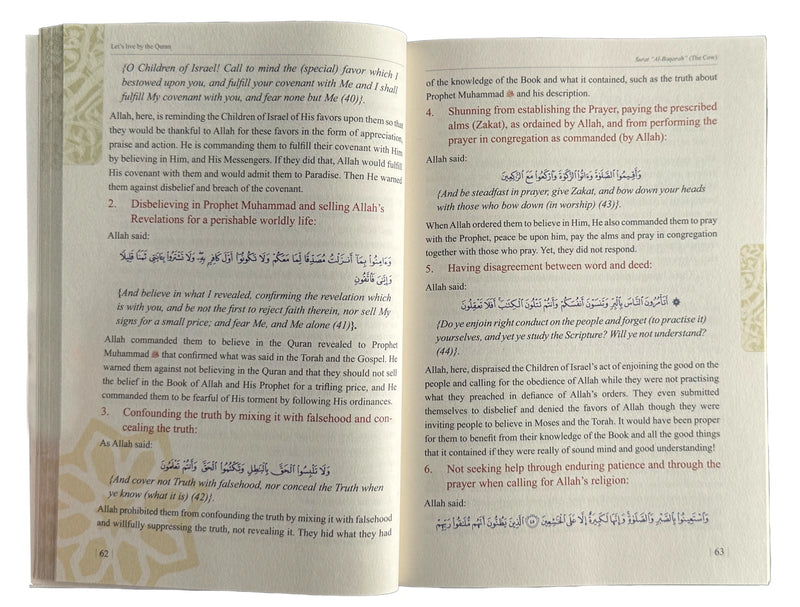 Let's live by the Quran
{O Children of Israel! Call to mind the (special) favor which I
bestowed upon you, and fulfill your covenant with Me and I shall
fulfill My covenant with you, and fear none but Me (40)}.
Allah, here, is reminding the Children of Israel of His favors upon them so that
they would be thankful to Allah for these favors in the form of appreciation,
praise and action. He is commanding them to fulfill their covenant with Him
by believing in Him, and His Messengers. If they did that, Allah would fulfill
His covenant with them and would admit them to Paradise. Then He warned
them against disbelief and breach of the covenant.
2. Disbelieving in Prophet Muhammad and selling Allah's
Revelations for a perishable worldly life:
Allah said:
وَءَامِنُوا۟ بِمَآ أَنزَلْتُ مُصَدِّقًا لِّمَا مَعَكُمْ وَلَا تَكُونُوٓا۟ أَوَّلَ كَافِرٍۭ بِهِۦ وَلَا تَشْتَرُوا۟ بِـَٔايَـٰتِى ثَمَنًا قَلِيلًا
وَإِيَّـٰىَ فَٱتَّقُونِ
{And believe in what I revealed, confirming the revelation which
is with you, and be not the first to reject faith therein, nor sell My
signs for a small price; and fear Me, and Me alone (41)}.
Allah commanded them to believe in the Quran revealed to Prophet
Muhammad ﷺ that confirmed what was said in the Torah and the Gospel. He
warned them against not believing in the Quran and that they should not sell
the belief in the Book of Allah and His Prophet for a trifling price, and He
commanded them to be fearful of His torment by following His ordinances.
3. Confounding the truth by mixing it with falsehood and con-
cealing the truth:
As Allah said:
وَلَا تَلْبِسُوا۟ ٱلْحَقَّ بِٱلْبَـٰطِلِ وَتَكْتُمُوا۟ ٱلْحَقَّ وَأَنتُمْ تَعْلَمُونَ
{And cover not Truth with falsehood, nor conceal the Truth when
ye know (what it is) (42)}.
Allah prohibited them from confounding the truth by mixing it with falsehood
and willfully suppressing the truth, not revealing it. They hid what they had
62
Surat "Al-Baqarah" (The Cow)
of the knowledge of the Book and what it contained, such as the truth about
Prophet Muhammad ﷺ and his description.
4. Shunning from establishing the Prayer, paying the prescribed
alms (Zakat), as ordained by Allah, and from performing the
prayer in congregation as commanded (by Allah):
Allah said:
وَأَقِيمُوا۟ ٱلصَّلَوٰةَ وَءَاتُوا۟ ٱلزَّكَوٰةَ وَٱرْكَعُوا۟ مَعَ ٱلرَّٰكِعِينَ
{And be steadfast in prayer, give Zakat, and bow down your heads
with those who bow down (in worship) (43)}.
When Allah ordered them to believe in Him, He also commanded them to pray
with the Prophet, peace be upon him, pay the alms and pray in congregation
together with those who pray. Yet, they did not respond.
5. Having disagreement between word and deed:
Allah said:
۞ أَتَأْمُرُونَ ٱلنَّاسَ بِٱلْبِرِّ وَتَنسَوْنَ أَنفُسَكُمْ وَأَنتُمْ تَتْلُونَ ٱلْكِتَـٰبَ أَفَلَا تَعْقِلُونَ
{Do ye enjoin right conduct on the people and forget (to practise it)
yourselves, and yet ye study the Scripture? Will ye not understand?
(44)}.
Allah, here, dispraised the Children of Israel's act of enjoining the good on the
people and calling for the obedience of Allah while they were not practising
what they preached in defiance of Allah's orders. They even submitted
themselves to disbelief and denied the favors of Allah though they were
inviting people to believe in Moses and the Torah. It would have been proper
for them to benefit from their knowledge of the Book and all the good things
that it contained if they were really of sound mind and good understanding!
6. Not seeking help through enduring patience and through the
prayer when calling for Allah's religion:
Allah said:
وَٱسْتَعِينُوا۟ بِٱلصَّبْرِ وَٱلصَّلَوٰةِ وَإِنَّهَا لَكَبِيرَةٌ إِلَّا عَلَى ٱلْخَـٰشِعِينَ ٤٥ ٱلَّذِينَ يَظُنُّونَ أَنَّهُم مُّلَـٰقُوا۟ رَبِّهِمْ
63